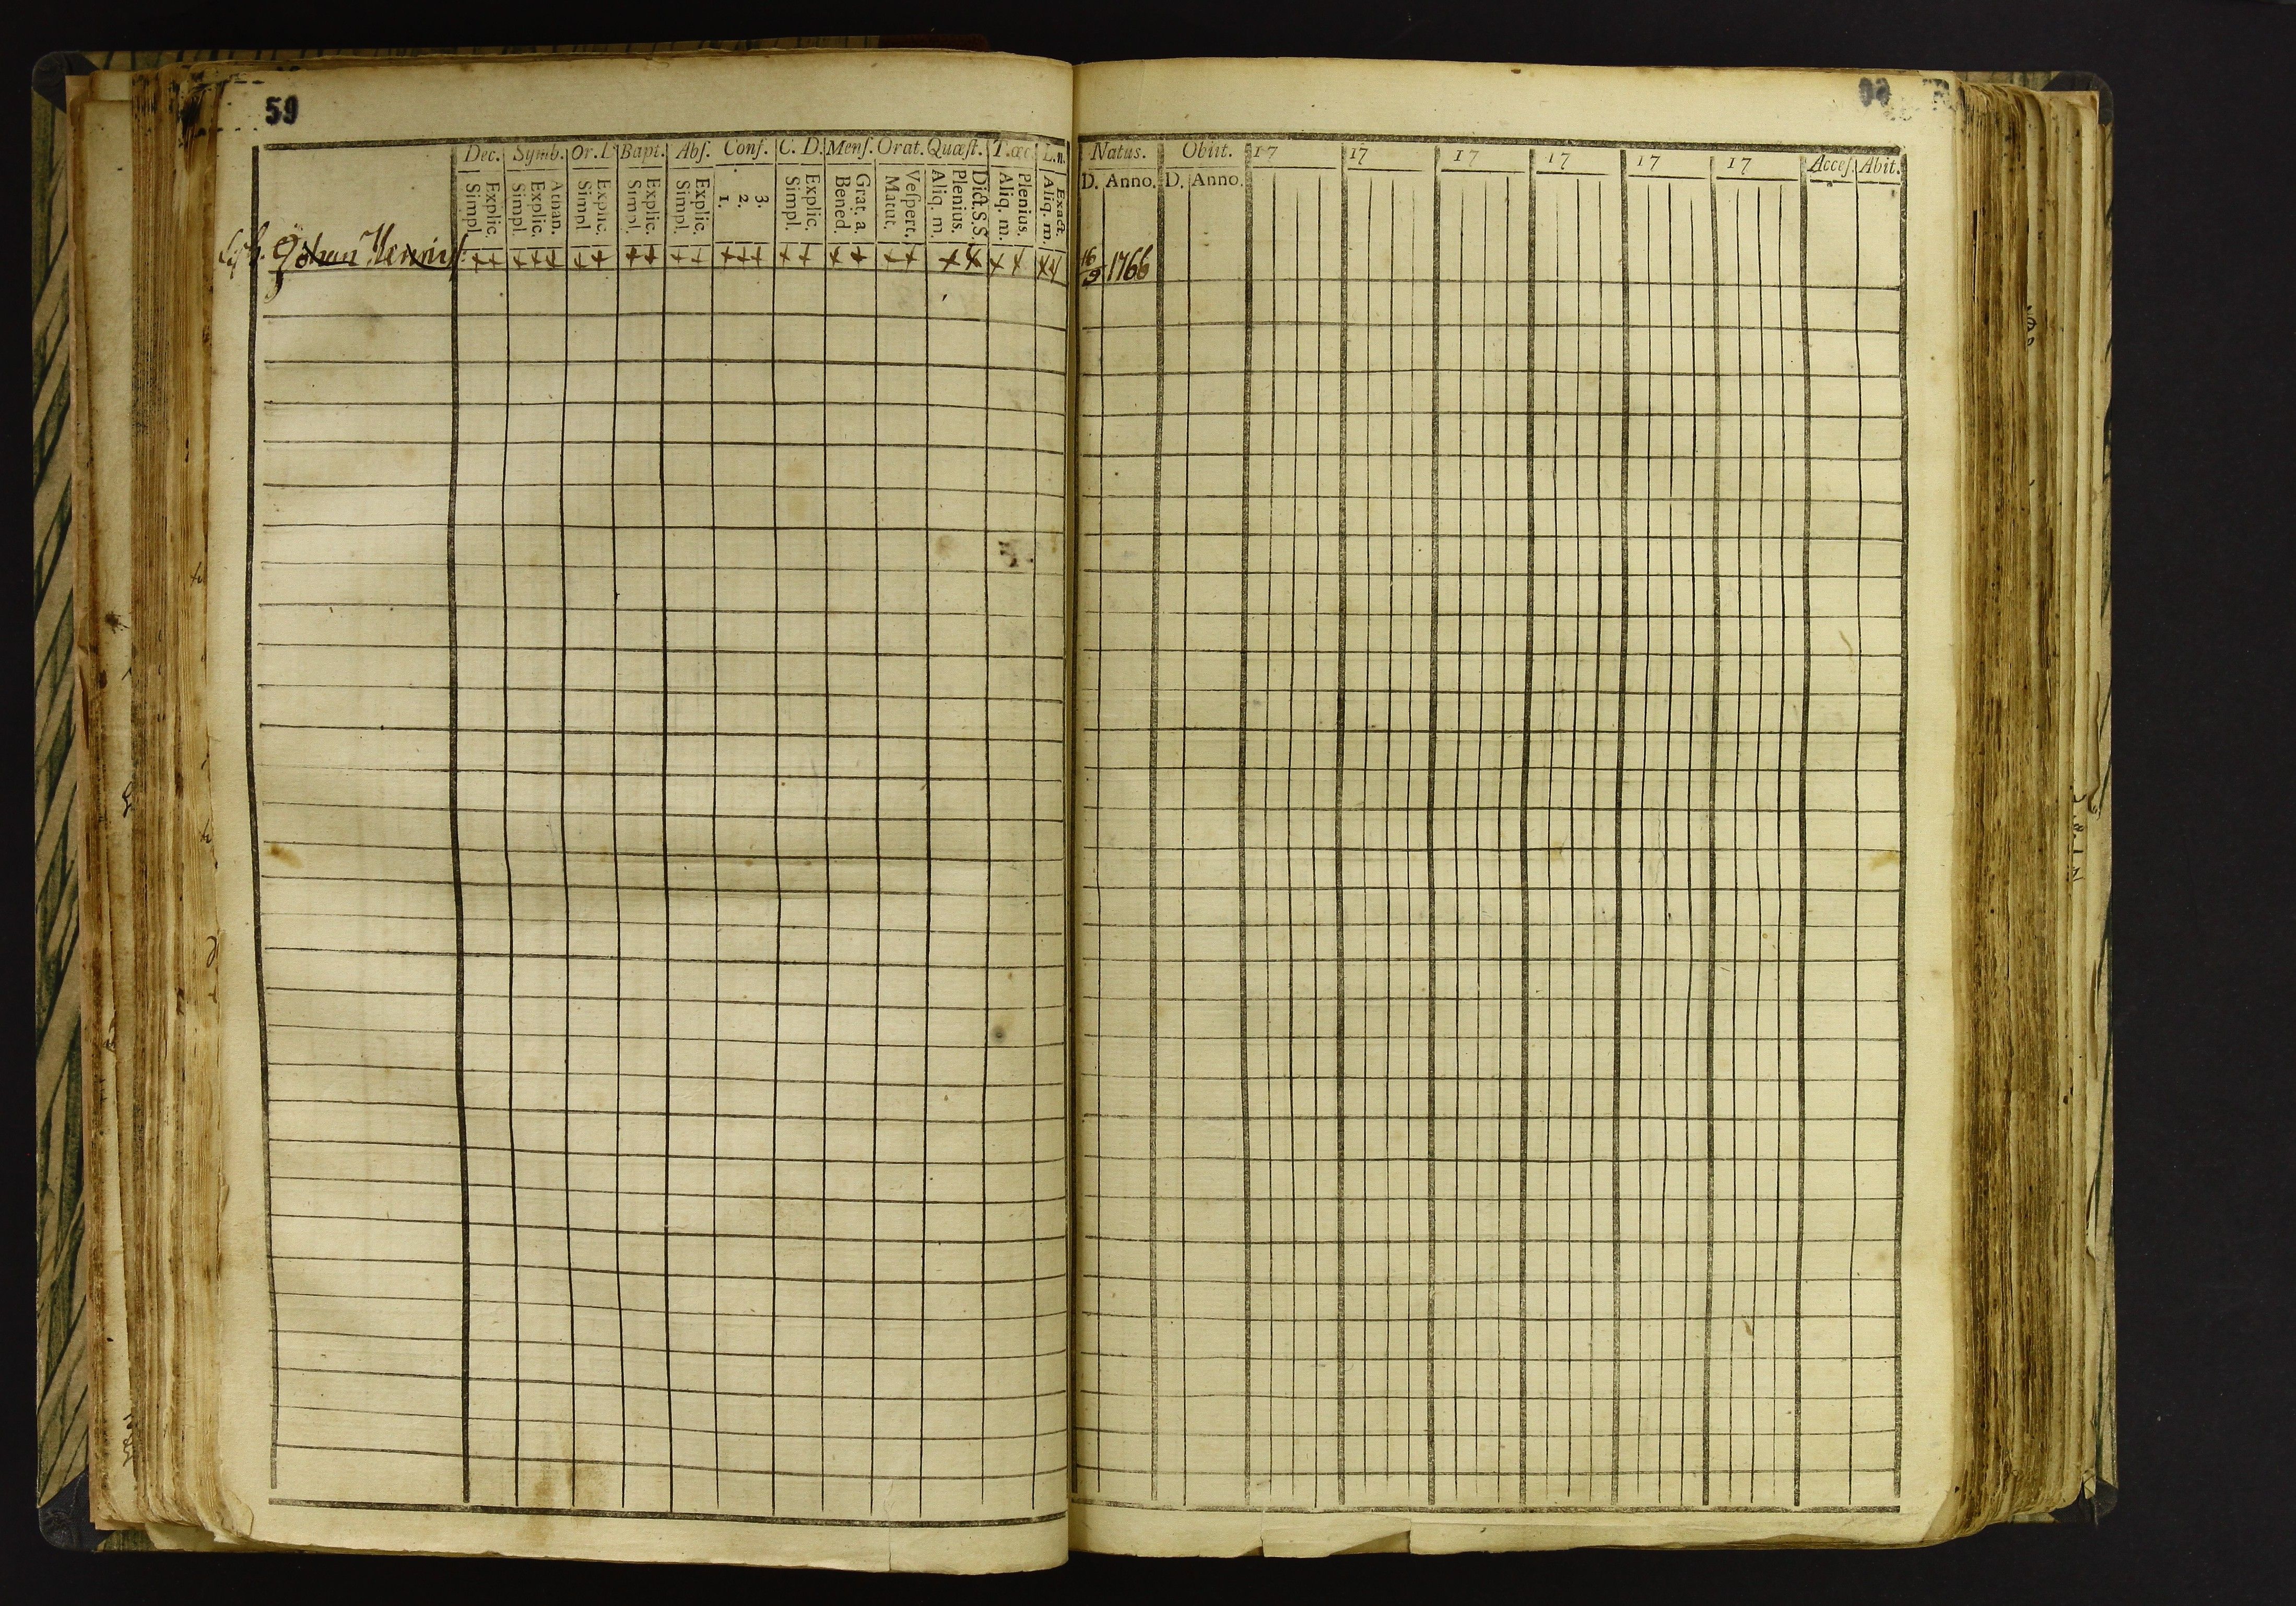 59
Dec. Symb. Or. D Bapt. Abſ. Conf. C. D. Menſ. Orat. Quæſt. T. œc. L.n.
Simpl. Explic. Simpl. Explic. Athan. Simpl. Explic. Simpl. Explic. Simpl. Explic. 1. 2. 3. Simpl. Explic. Bened. Grat. a. Matut. Veſpert. Aliq. m. Plenius. Dict. S. S. Aliq. m. Plenius. Aliq. m. Exact.
Johan Henric
60
Natus. Obiit. 17 17 17 17 17 17 Acceſ. Abit.
D. Anno. D. Anno.
16/9 1766